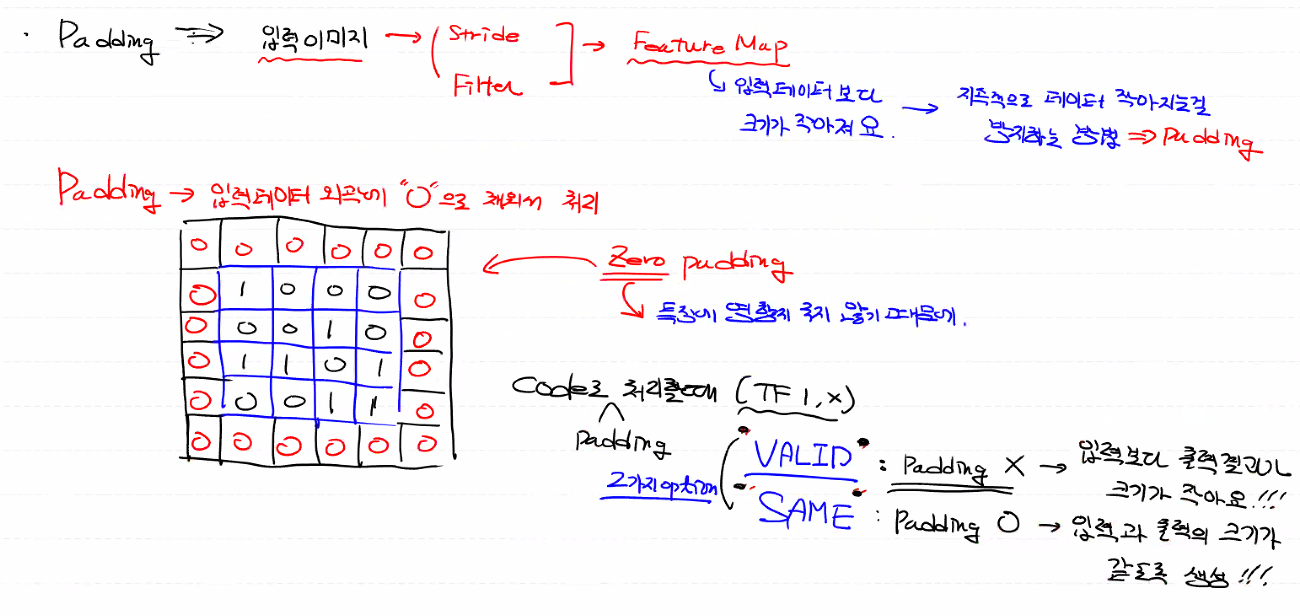 · Padding ⇒ 입력이미지 → ( Stride Filter ] → Feature Map
↳ 입력데이터보다 크기가 작아져요. → 지속적으로 데이터 작아지는걸 방지하는 방법 ⇒ Padding
Padding → 입력데이터 외곽에 "0"으로 채워서 처리
0 0 0 0 0 0
0 1 0 0 0 0
0 0 0 1 0 0
0 1 1 0 1 0
0 0 0 1 1 0
0 0 0 0 0 0
Zero padding
특징에 영향을 주지 않기 때문에.
Code로 처리할때 (TF 1.x)
padding
2가지option
"VALID" : Padding X → 입력보다 출력결과의
크기가 작아요!!!
"SAME" : Padding O → 입력과 출력의 크기가
같도록 생성!!!